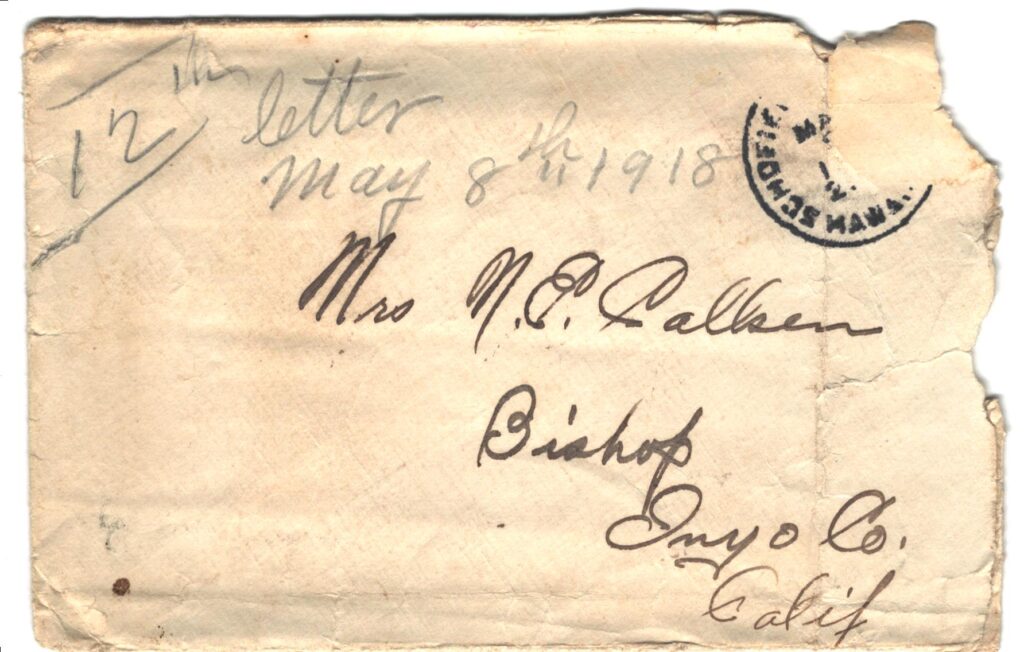 12th letter
May 8th 1918
SCHOFIE
MA
Mrs N.E. Callsen
Bishop
Inyo Co.
Calif